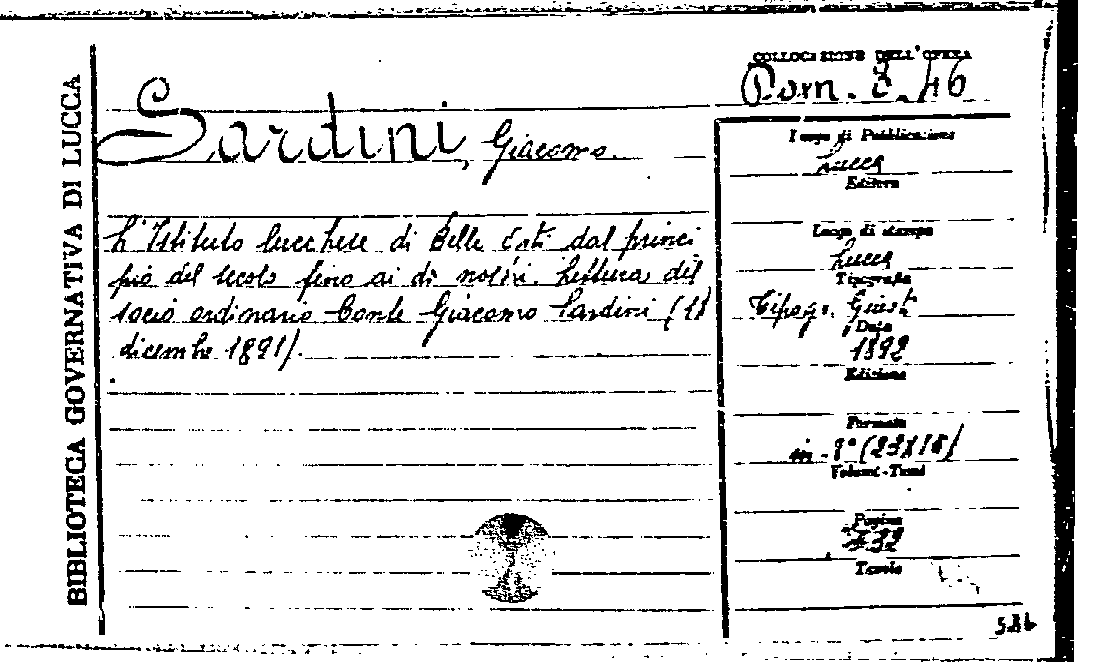 BIBLIOTECA GOVERNATIVA DI LUCCA
COLLOCAZIONE DELL'OPERA
Pom. 46
Sardini, Giacomo.
L'Istituto lucchese di Belle Arti dal princi
pio del secolo fino ai dì nostri. Lettura del
socio ordinario Conte Giacomo Sardini (18
dicembre 1891).
Luogo di Pubblicazione
Lucca
Editore
Luogo di stampa
Lucca
Tipografia
Tipogr. Giusti
Data
1892
Edizione
Formato
in-8° (23X16)
Volumi-Tomi
Pagine
32
Tavole
586